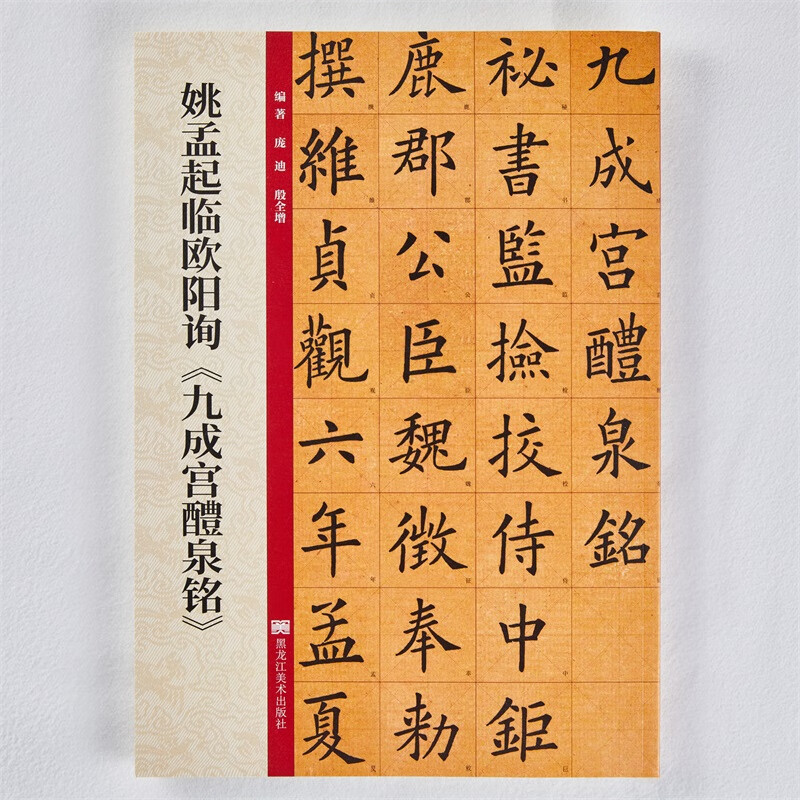 姚孟起临欧阳询《九成宫醴泉铭》
编著 庞迪 殷全增
黑龙江美术出版社
九成宫醴泉銘
祕書監撿挍侍中鉅
鹿郡公臣魏徵奉勑
撰維貞觀六年孟夏